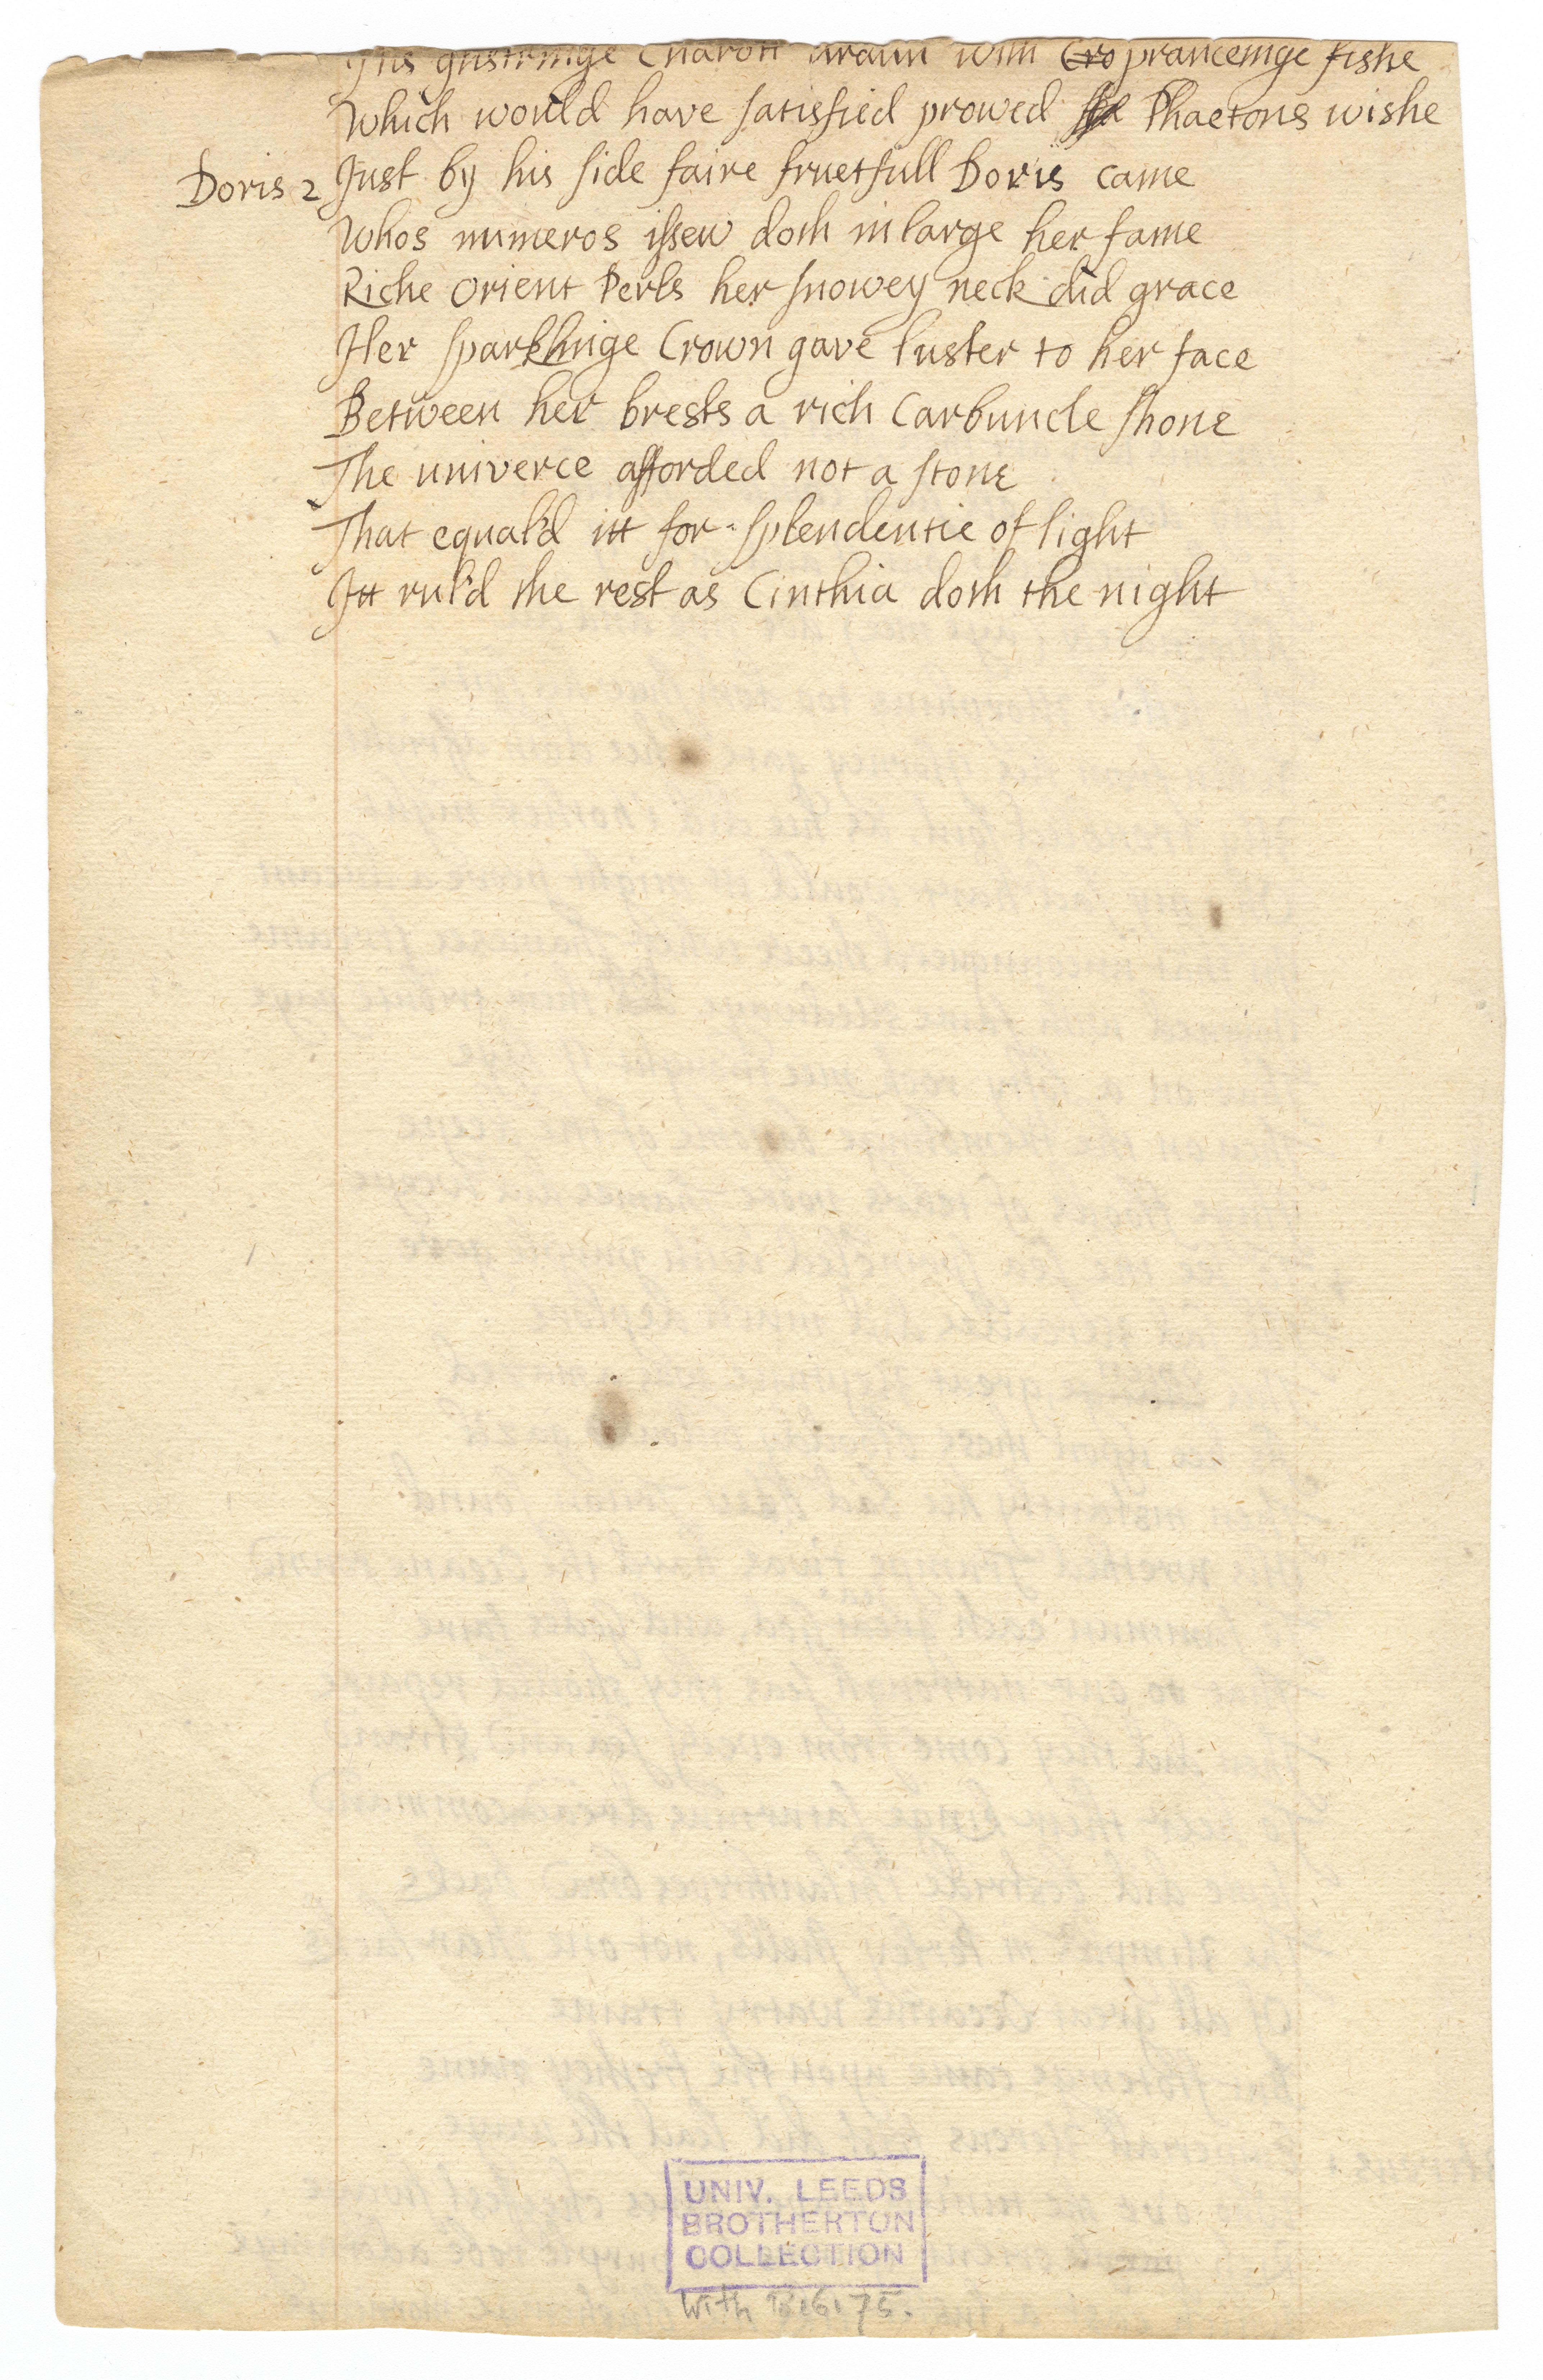 His glistringe Charott drawn with Cro pranceinge fishe
Which would have satisfied prowed Phaetons wishe
Doris 2 Just by his side faire fruetfull Doris came
Whos numeros issew doth inlarge her fame
Riche Orient Perls her snowey neck did grace
Her sparklinge Crown gave luster to her face
Between her brests a rich Carbuncle shone
The univerce afforded not a stone
That equal'd itt for splendentie of light
Itt rul'd the rest as Cinthia doth the night
UNIV. LEEDS
BROTHERTON
COLLECTION
With 13.6.75.